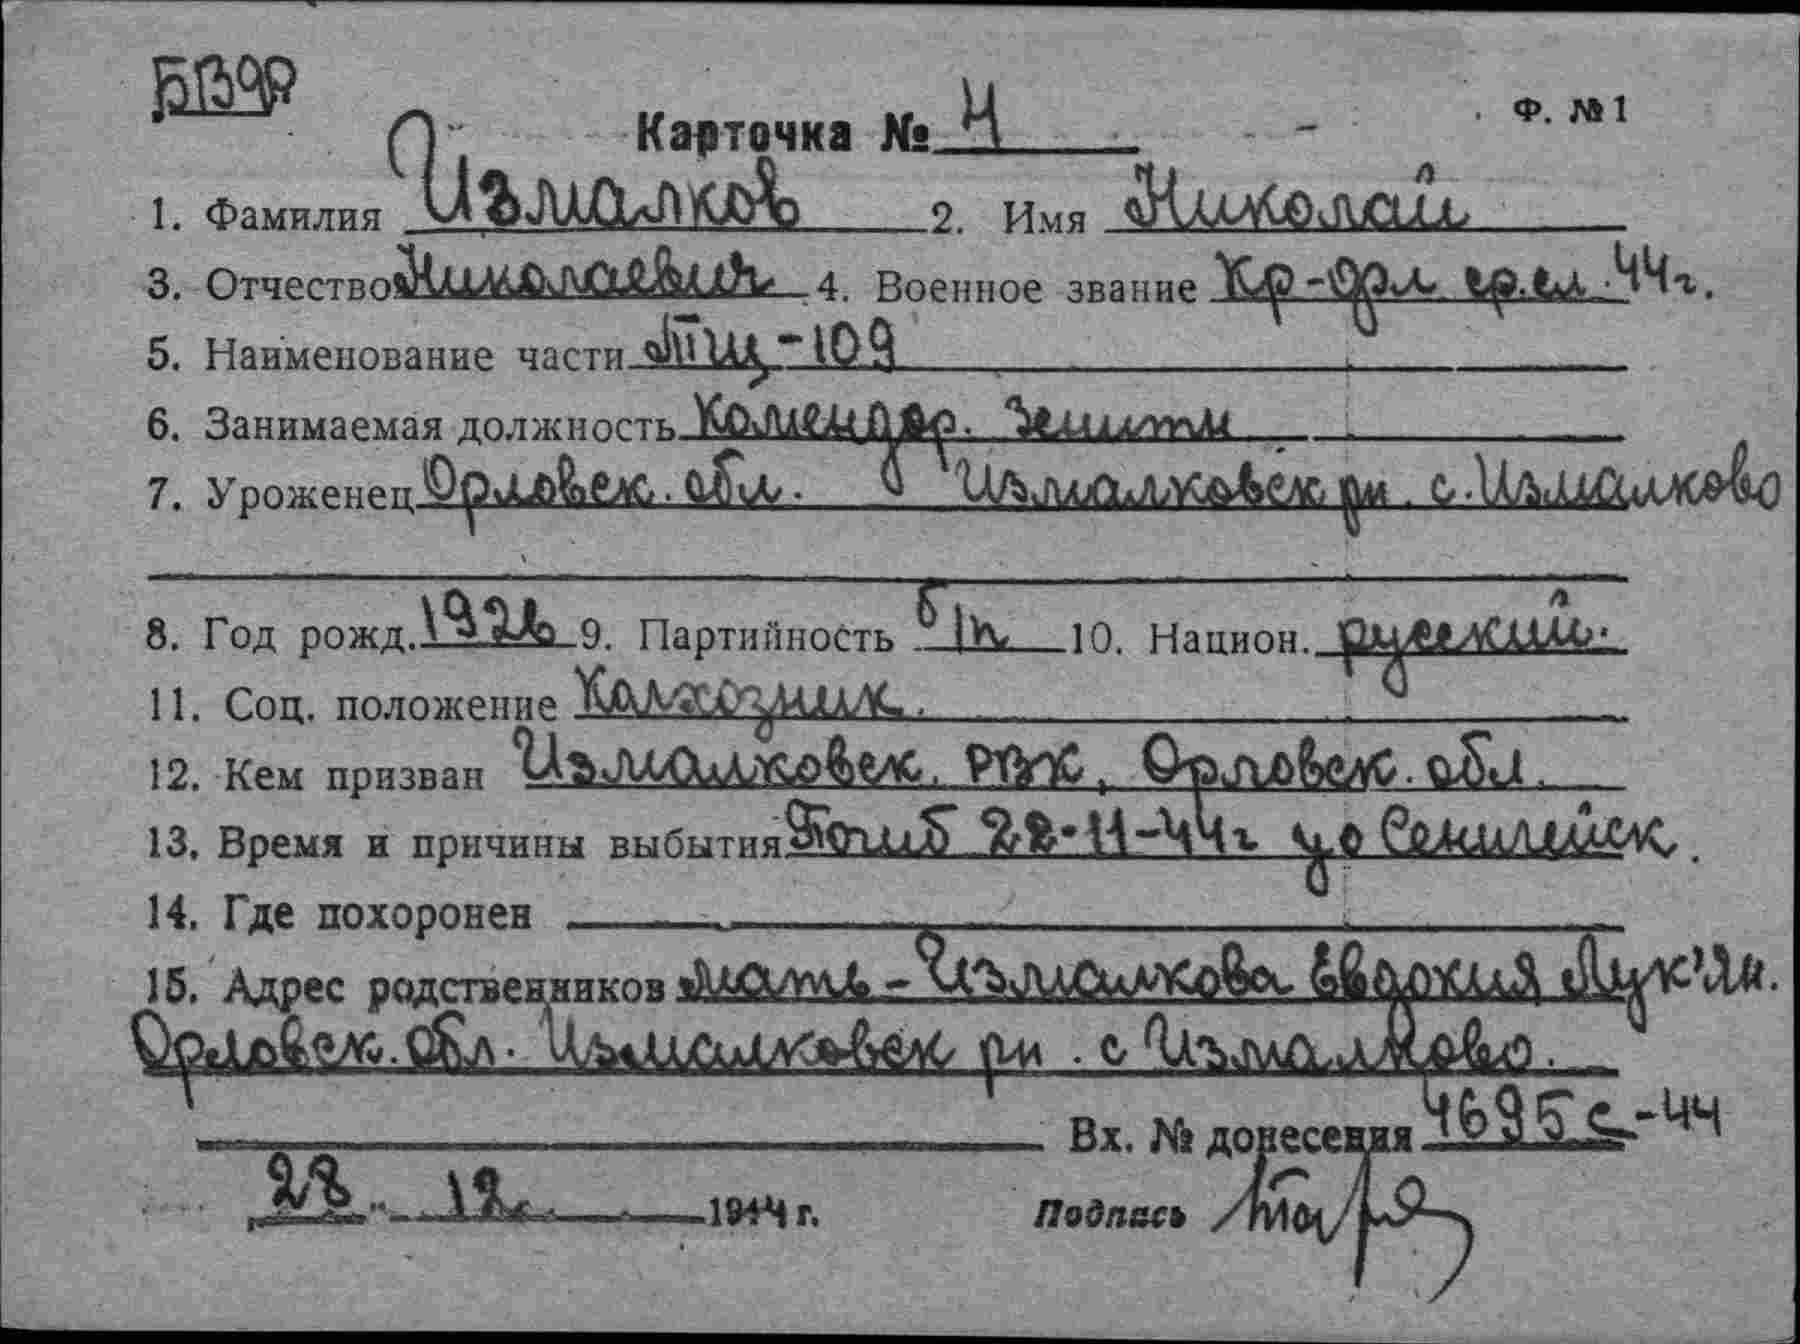 Карточка № 4 Ф. №1
1. Фамилия Измалков 2. Имя Николай
3. Отчество Николаевич 4. Военное звание Кр-фл ср.сл. 44г.
5. Наименование части Тщ-109
6. Занимаемая должность Комендор. Зенитч
7. Уроженец Орловск. обл. Измалковск рн. с. Измалково
8. Год рожд. 1926 9. Партийность б/п 10. Национ. русский.
11. Соц. положение Колхозник.
12. Кем призван Измалковск. РВК, Орловск. обл.
13. Время и причины выбытия Погиб 22-11-44г у о Сейскари
14. Где похоронен
15. Адрес родственников мать - Измалкова Евдокия Лук'ян.
Орловск. обл. Измалковск рн. с Измалково.
Вх. № донесения 4695с-44
28. 12. 1944 г. Подпись